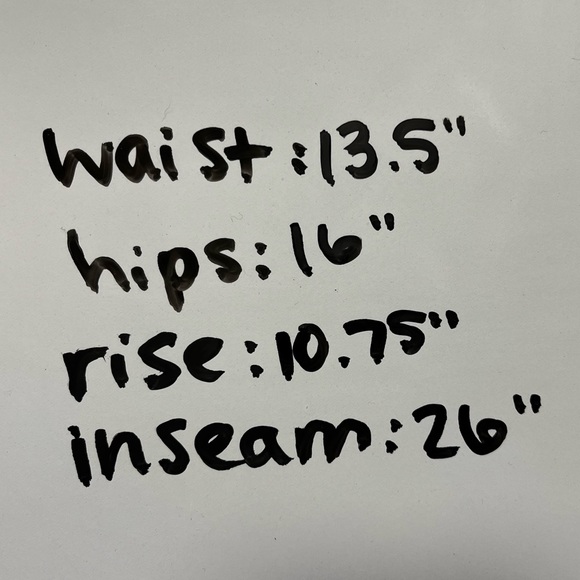 waist:13.5"
hips:16"
rise:10.75"
inseam:26"